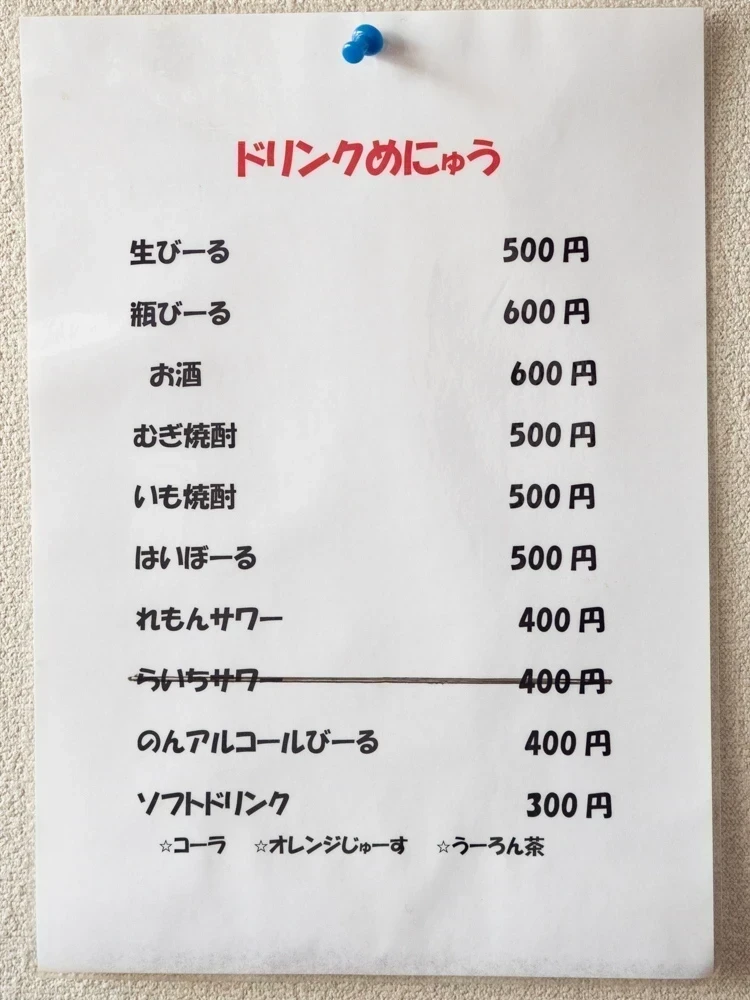 ドリンクめにゅう
生びーる 500円
瓶びーる 600円
お酒 600円
むぎ焼酎 500円
いも焼酎 500円
はいぼーる 500円
れもんサワー 400円
らいちサワー 400円
のんアルコールびーる 400円
ソフトドリンク 300円
☆コーラ ☆オレンジじゅーす ☆うーろん茶